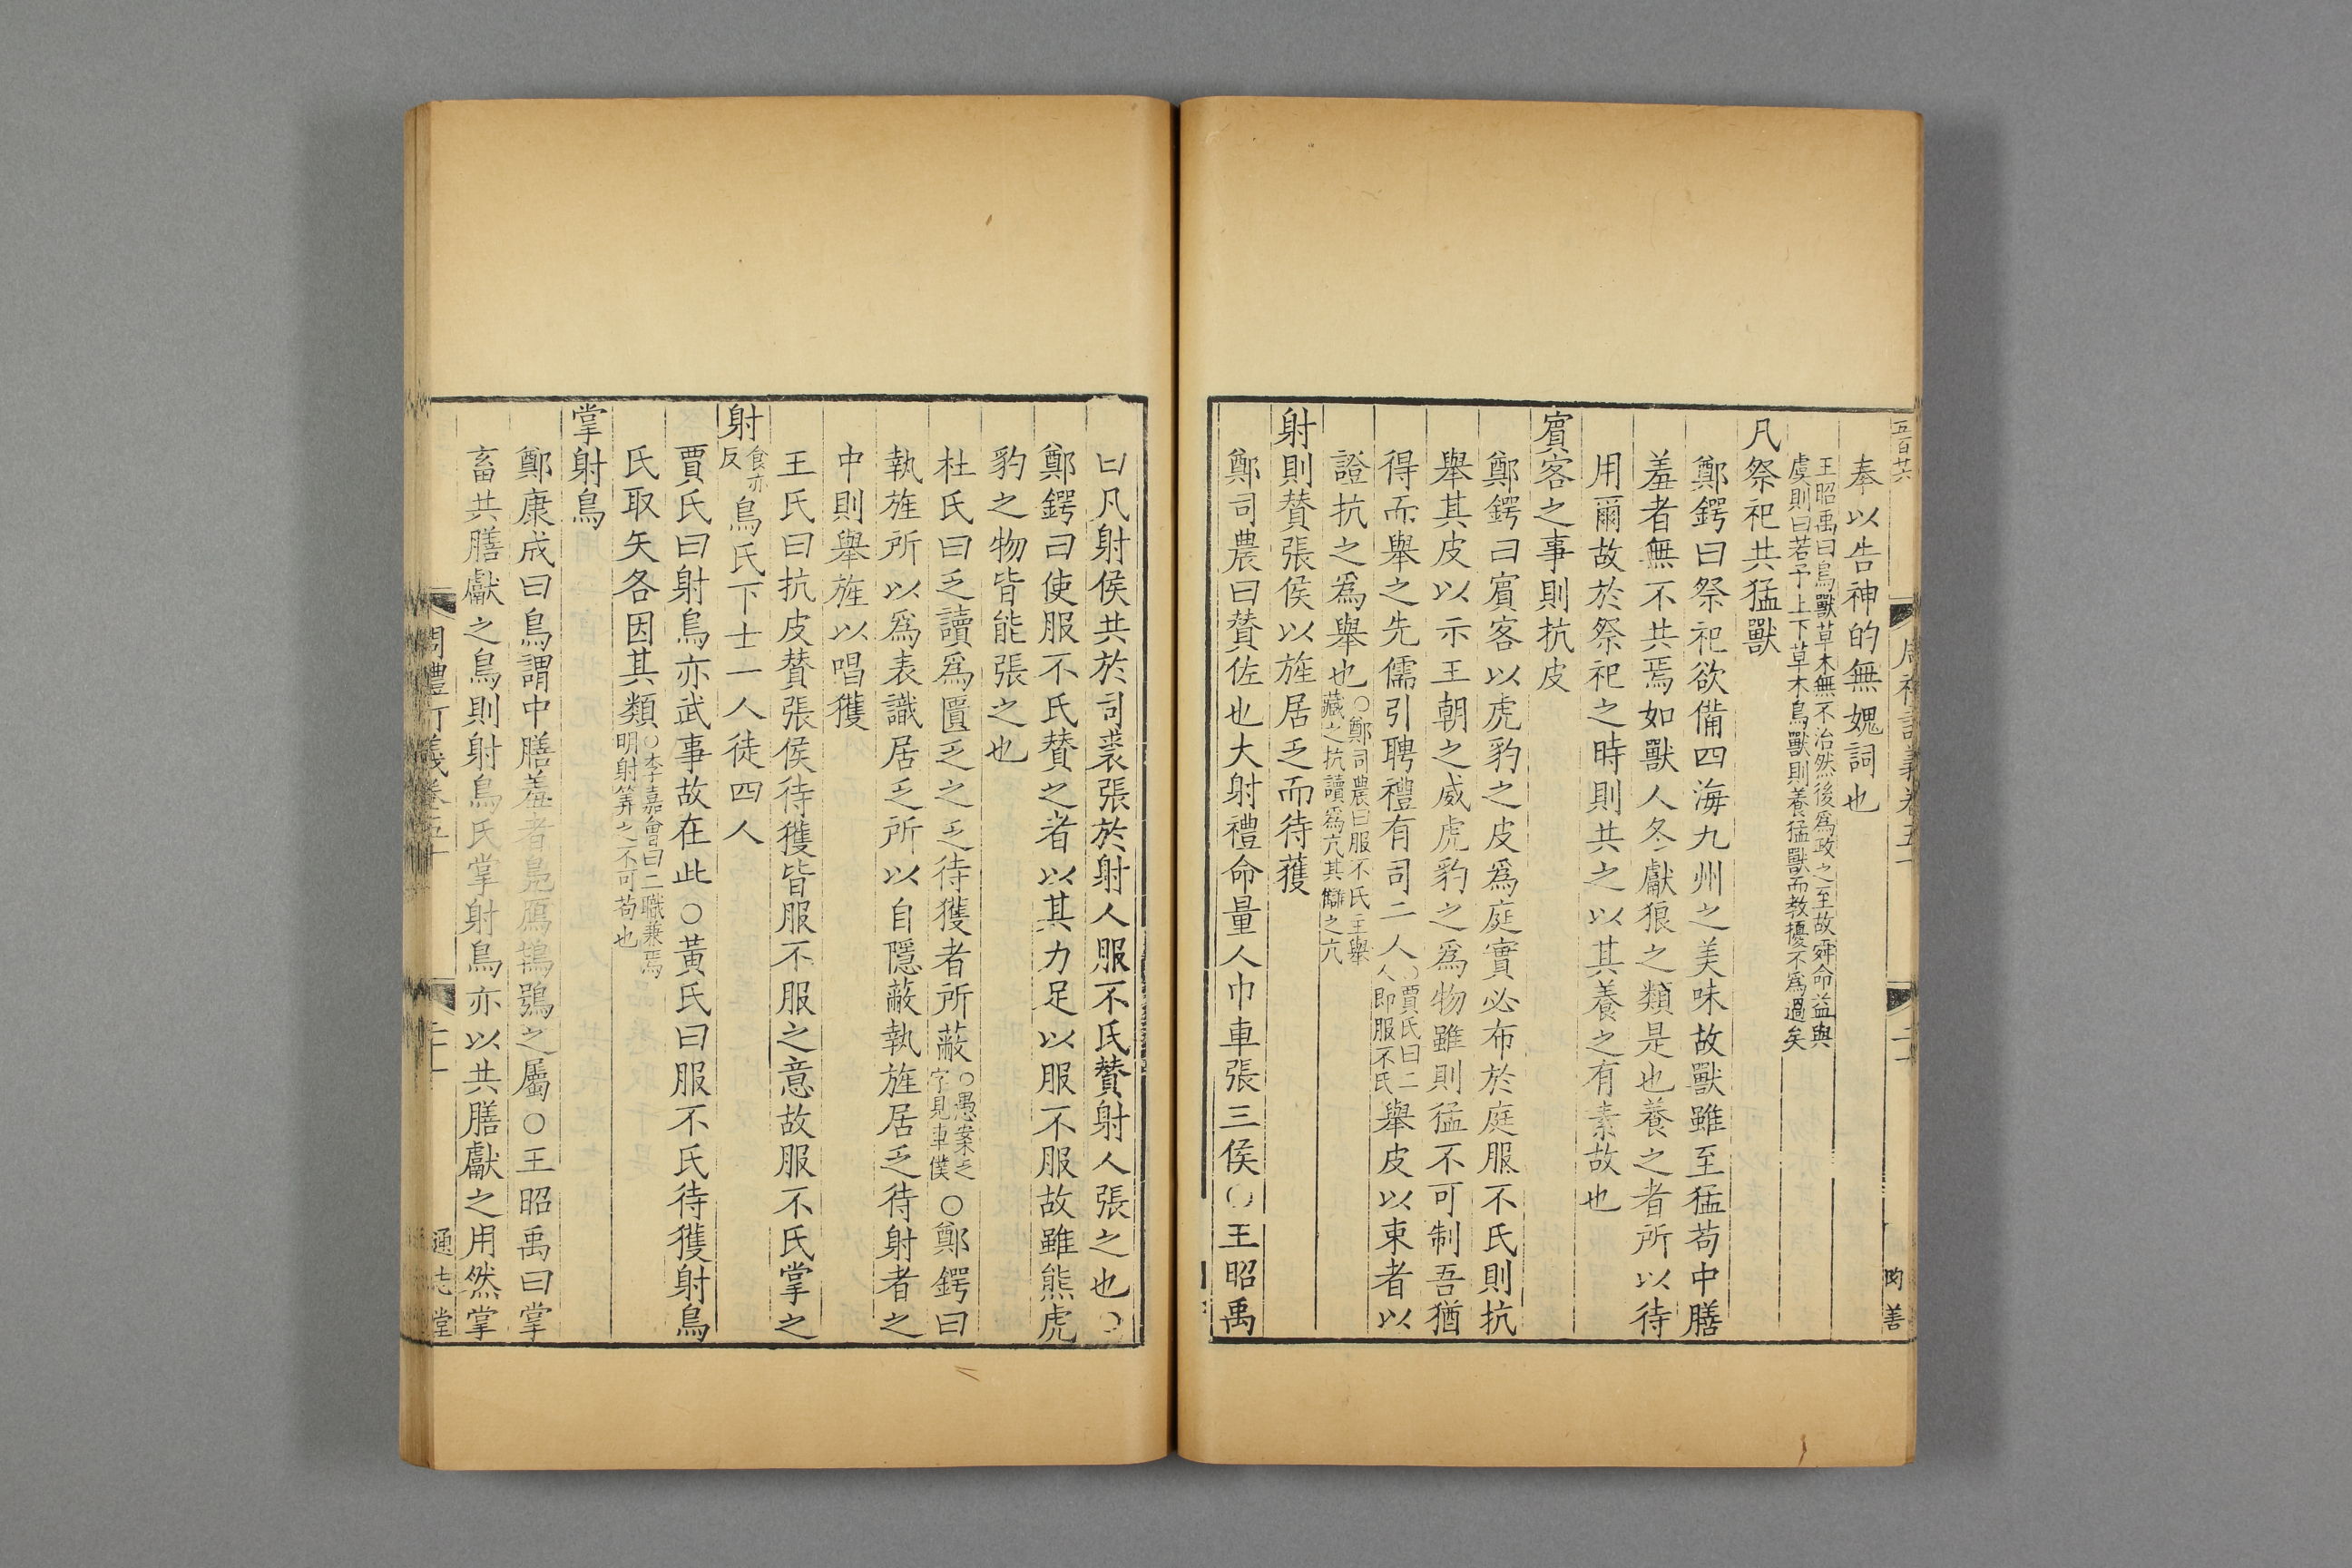 五百廿六
奉以告神的無媿詞也
王昭禹曰鳥獸草木無不治然後爲政之至故舜命益與
虞則曰若予上下草木鳥獸則養猛獸而教擾不爲過矣
凡祭祀共猛獸
鄭鍔曰祭祀欲備四海九州之美味故獸雖至猛苟中膳
羞者無不共焉如獸人冬獻狼之類是也養之者所以待
用爾故於祭祀之時則共之以其養之有素故也
賓客之事則抗皮
鄭鍔曰賓客以虎豹之皮爲庭實必布於庭服不氏則抗
舉其皮以示王朝之威虎豹之爲物雖則猛不可制吾猶
得而舉之先儒引聘禮有司二人○賈氏曰二人即服不氏舉皮以東者以
證抗之爲舉也○鄭司農曰服不氏主舉藏之抗讀爲亢其讎之亢
射則贊張侯以旌居乏而待獲
鄭司農曰贊佐也大射禮命量人巾車張三侯○王昭禹
周禮訂義卷五十
二十
陶善
曰凡射侯共於司裘張於射人服不氏贊射人張之也○
鄭鍔曰使服不氏贊之者以其力足以服不服故雖熊虎
豹之物皆能張之也
杜氏曰乏讀爲匱乏之乏待獲者所蔽○愚案乏字見車僕○鄭鍔曰
執旌所以爲表識居乏所以自隱蔽執旌居乏待射者之
中則舉旌以唱獲
王氏曰抗皮贊張侯待獲皆服不服之意故服不氏掌之
射食亦反鳥氏下士一人徒四人
賈氏曰射鳥亦武事故在此○黃氏曰服不氏待獲射鳥
氏取矢各因其類○李嘉會曰二職兼焉明射筭之不可苟也
掌射鳥
鄭康成曰鳥謂中膳羞者鳧鴈鴇鴞之屬○王昭禹曰掌
畜共膳獻之鳥則射鳥氏掌射鳥亦以共膳獻之用然掌
周禮訂義卷五十
通志堂